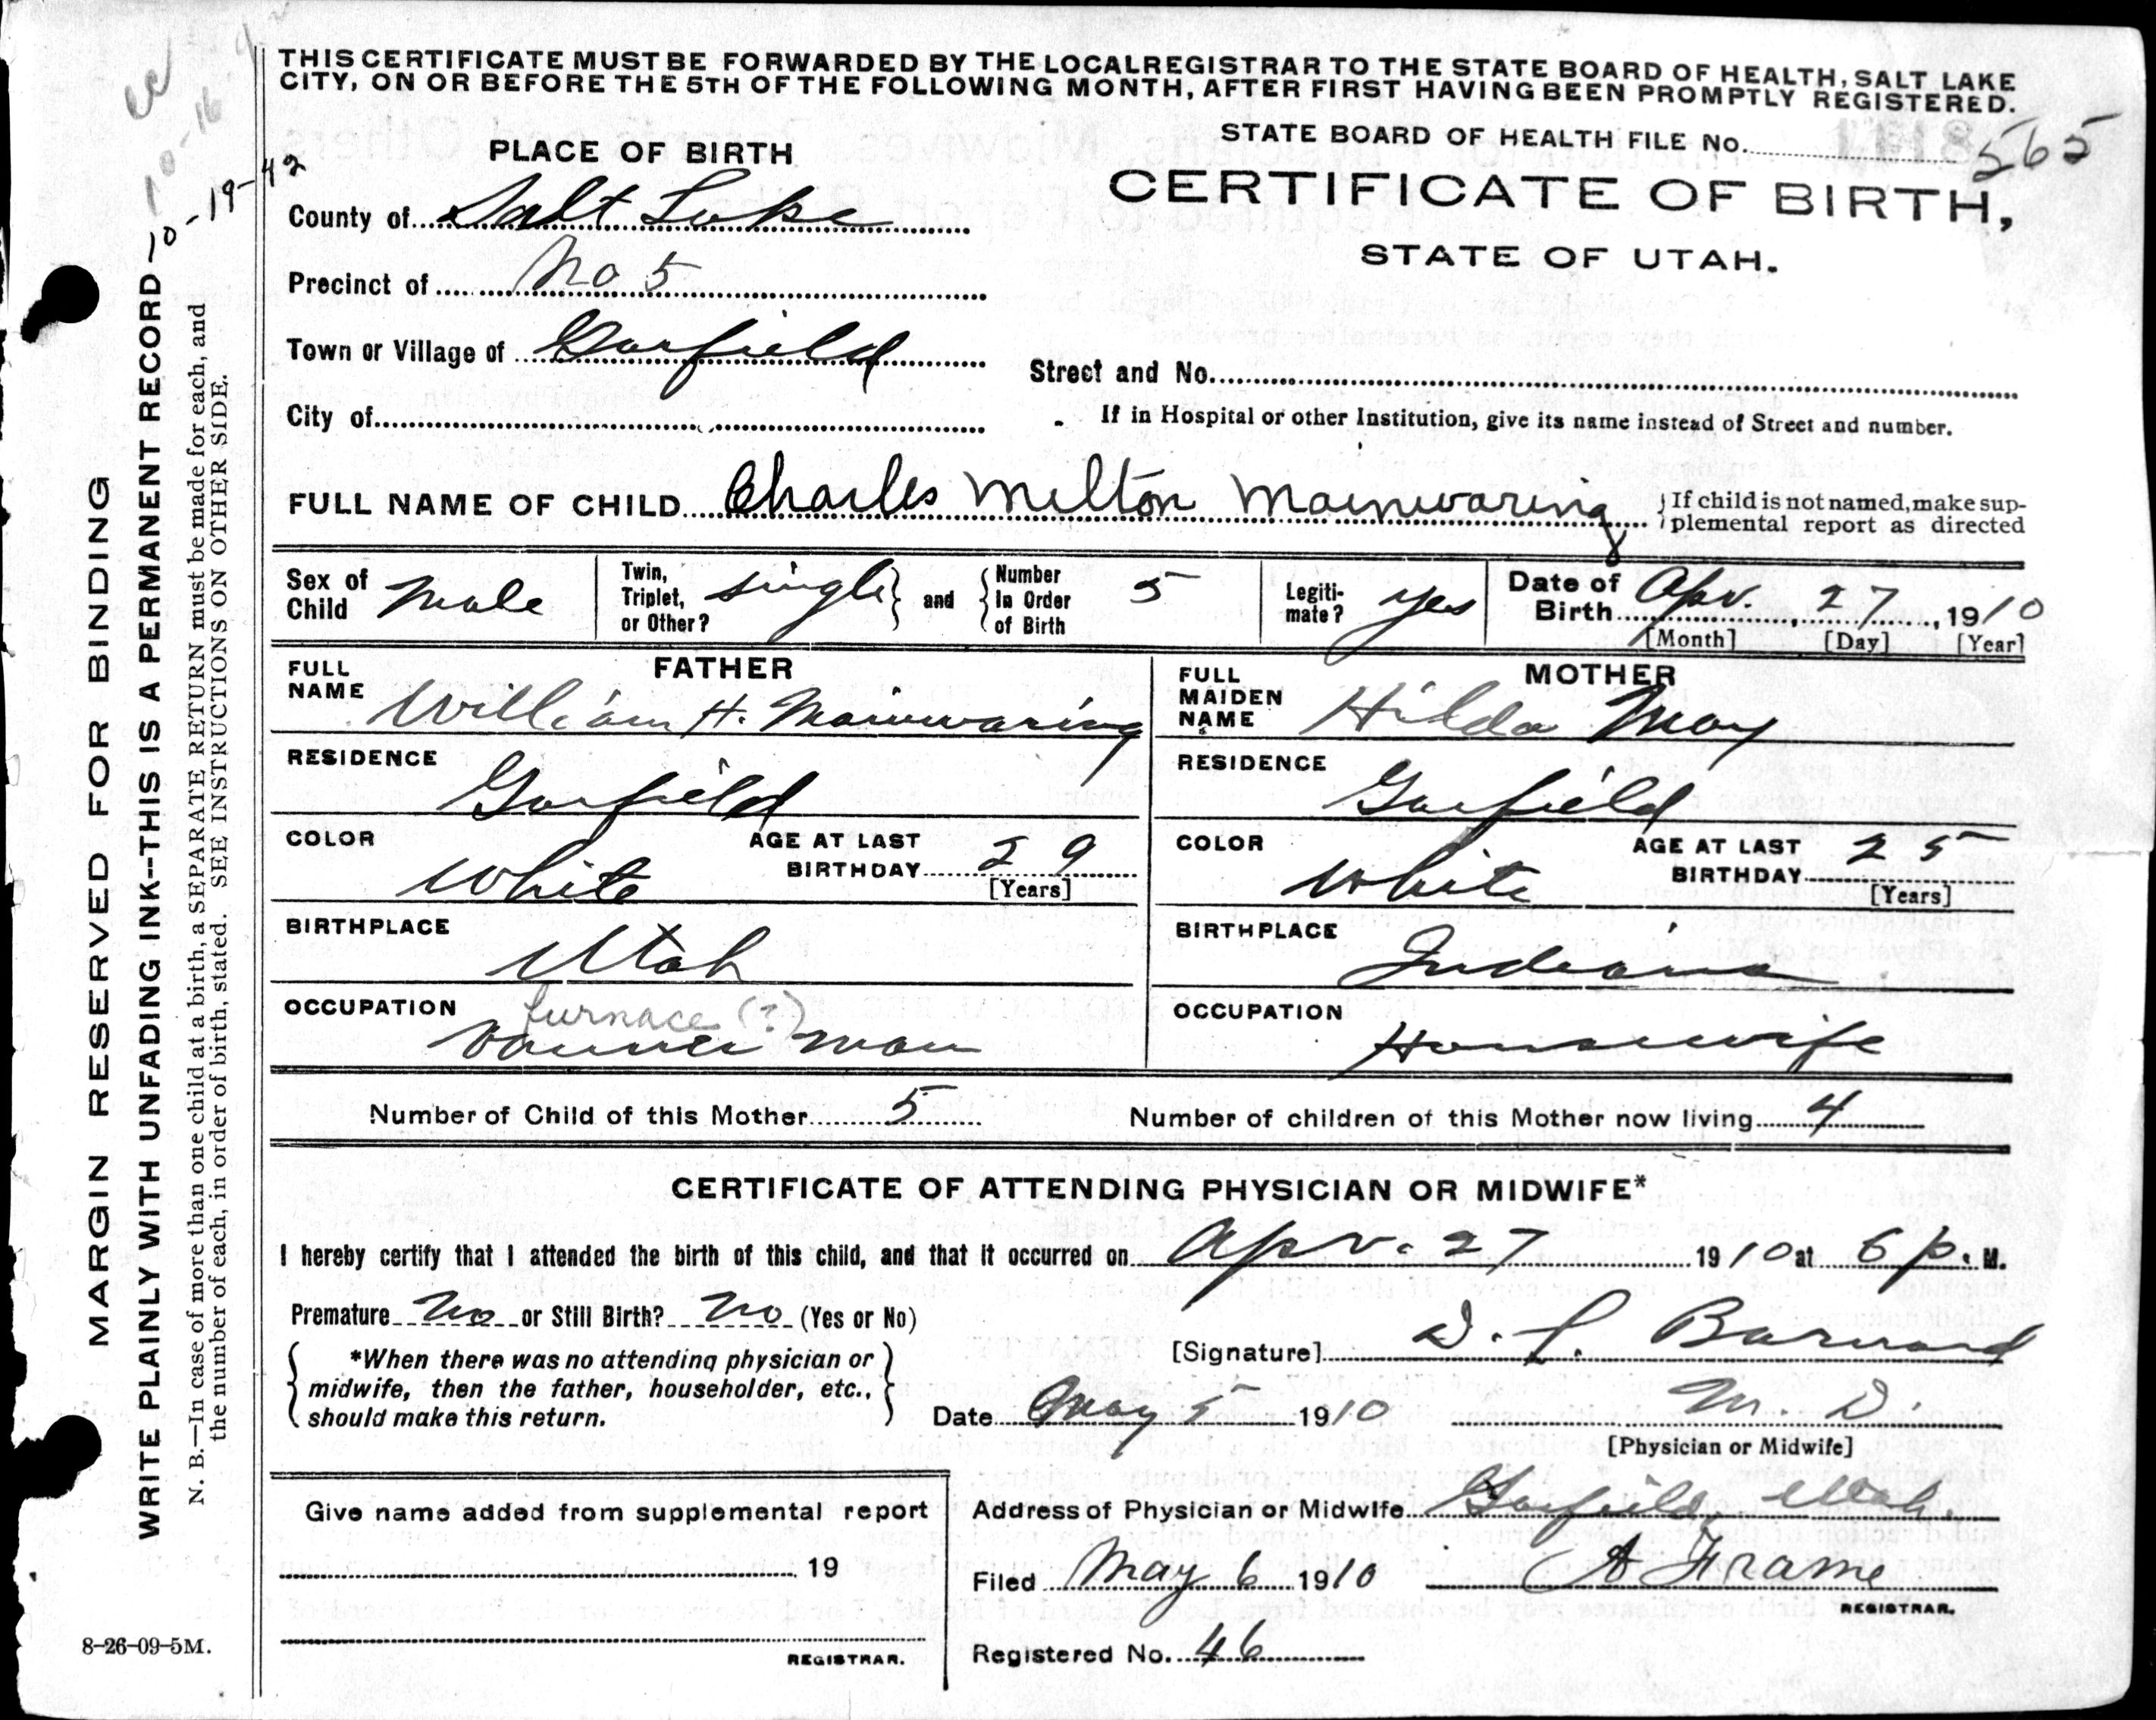 THIS CERTIFICATE MUST BE FORWARDED BY THE LOCAL REGISTRAR TO THE STATE BOARD OF HEALTH, SALT LAKE
CITY, ON OR BEFORE THE 5TH OF THE FOLLOWING MONTH, AFTER FIRST HAVING BEEN PROMPTLY REGISTERED.
STATE BOARD OF HEALTH FILE No. 565
PLACE OF BIRTH
CERTIFICATE OF BIRTH,
STATE OF UTAH.
10-19-42
10-16
County of Salt Lake
Precinct of No 5
Town or Village of Garfield
Street and No.
City of
If in Hospital or other Institution, give its name instead of Street and number.
FULL NAME OF CHILD Charles Melton Mainwaring
If child is not named, make sup-
plemental report as directed
Sex of Child Male
Twin, Triplet, or Other? single and Number In Order of Birth 5
Legiti-mate? yes
Date of Birth Apr. 27, 1910
[Month] [Day] [Year]
FATHER
FULL NAME William H. Mainwaring
RESIDENCE Garfield
COLOR White
AGE AT LAST BIRTHDAY 29
[Years]
BIRTHPLACE Utah
OCCUPATION furnace (?)
man
MOTHER
FULL MAIDEN NAME Hilda May
RESIDENCE Garfield
COLOR White
AGE AT LAST BIRTHDAY 25
[Years]
BIRTHPLACE Indiana
OCCUPATION Housewife
Number of Child of this Mother 5
Number of children of this Mother now living 4
CERTIFICATE OF ATTENDING PHYSICIAN OR MIDWIFE*
I hereby certify that I attended the birth of this child, and that it occurred on Apr. 27 1910 at 6 p. M.
Premature No or Still Birth? No (Yes or No)
*When there was no attending physician or
midwife, then the father, householder, etc.,
should make this return.
[Signature] D. L. Barnard
Date May 5 1910 M. D.
[Physician or Midwife]
Give name added from supplemental report
19
REGISTRAR.
Address of Physician or Midwife Garfield, Utah.
Filed May 6 1910 A Frame
REGISTRAR.
Registered No. 46
8-26-09-5M.
MARGIN RESERVED FOR BINDING
WRITE PLAINLY WITH UNFADING INK--THIS IS A PERMANENT RECORD
N. B.—In case of more than one child at a birth, a SEPARATE RETURN must be made for each, and
the number of each, in order of birth, stated. SEE INSTRUCTIONS ON OTHER SIDE.